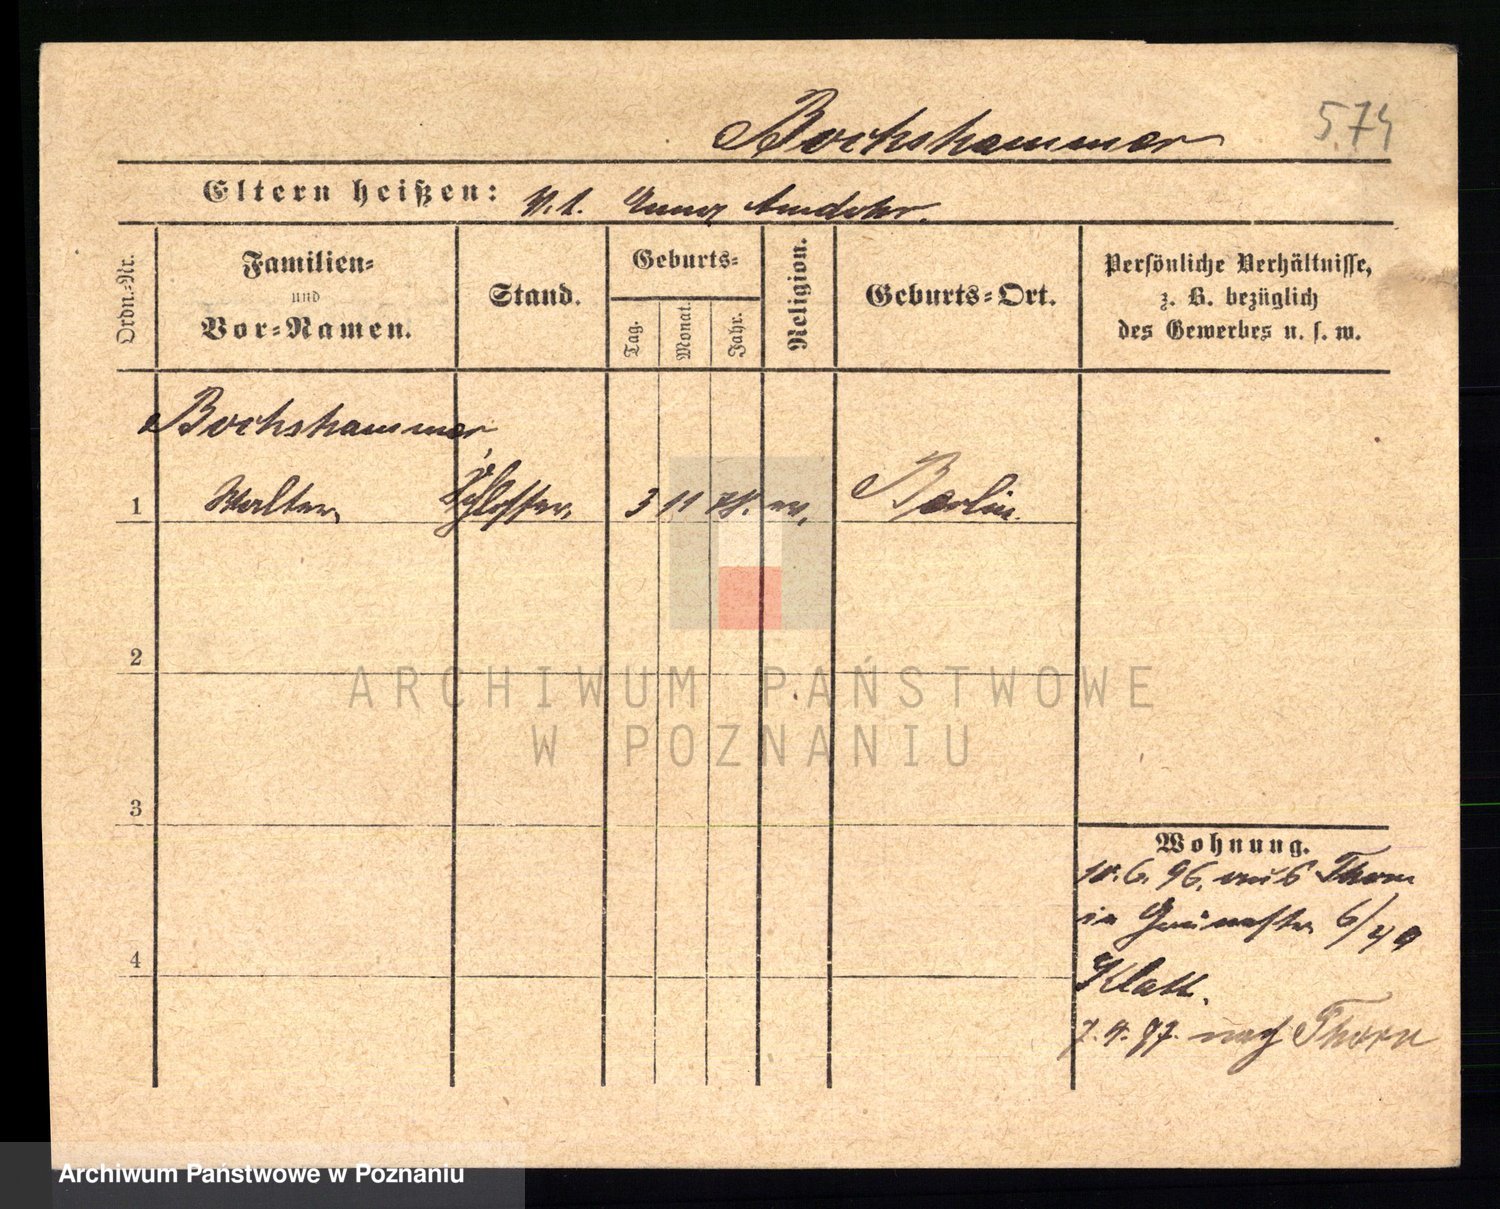 Bockshammer
574
Eltern heißen:
Ordn.-Nr.
Familien-
und
Vor-Namen.
Stand.
Geburts-
Tag.
Monat.
Jahr.
Religion.
Geburts-Ort.
Persönliche Verhältnisse,
z. B. bezüglich
des Gewerbes u. s. w.
Bockshammer
1 Walter Schlosser 3 11 ev. Berlin
2
3
4
Wohnung.
6. 96. aus Thorn
in
7. 4. 97. nach Thorn
ARCHIWUM PAŃSTWOWE
W POZNANIU
Archiwum Państwowe w Poznaniu